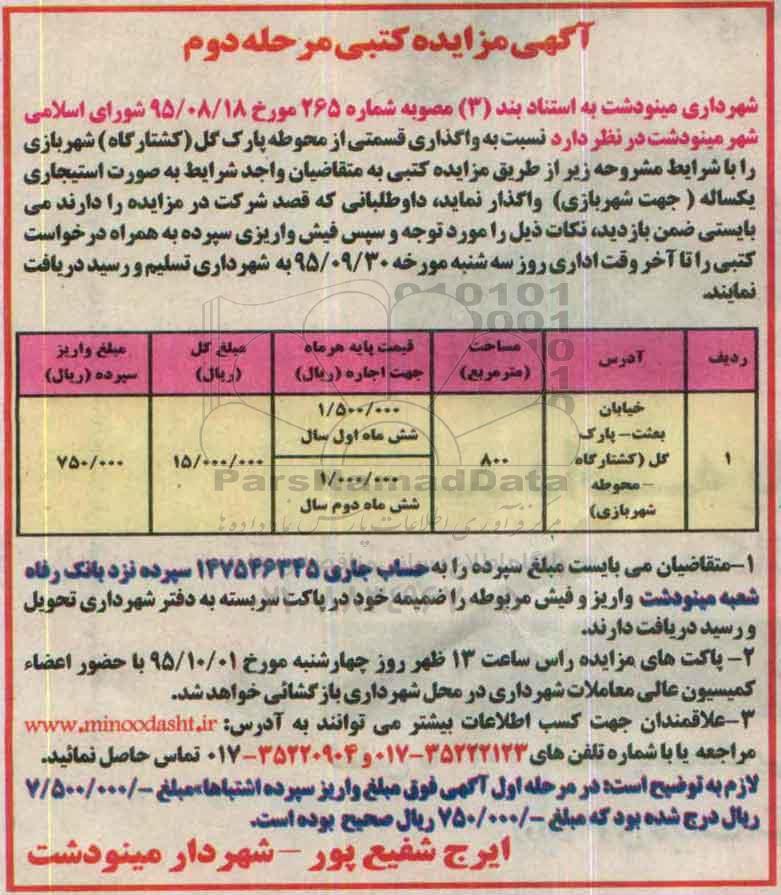 آگهی مزایده کتبی مرحله دوم
شهرداری مینودشت به استناد بند (۳) مصوبه شماره ۲۶۵ مورخ ۹۵/۰۸/۱۸ شورای اسلامی
شهر مینودشت در نظر دارد نسبت به واگذاری قسمتی از محوطه پارک گل (کشتارگاه) شهربازی
را با شرایط مشروحه زیر از طریق مزایده کتبی به متقاضیان واجد شرایط به صورت استیجاری
یکساله ( جهت شهربازی) واگذار نماید، داوطلبانی که قصد شرکت در مزایده را دارند می
بایستی ضمن بازدید، نکات ذیل را مورد توجه و سپس فیش واریزی سپرده به همراه درخواست
کتبی را تا آخر وقت اداری روز سه شنبه مورخه ۹۵/۰۹/۳۰ به شهرداری تسلیم و رسید دریافت
نمایند.
ردیف
آدرس
مساحت
(مترمربع)
قیمت پایه هرماه
جهت اجاره (ریال)
مبلغ کل
(ریال)
مبلغ واریز
سپرده (ریال)
۱
خیابان
بعثت- پارک
گل (کشتارگاه
-محوطه
شهربازی)
۸۰۰
۱/۵۰۰/۰۰۰
شش ماه اول سال
۱/۰۰۰/۰۰۰
شش ماه دوم سال
۱۵/۰۰۰/۰۰۰
۷۵۰/۰۰۰
ParsNamadData
مرکز فرآوری اطلاعات پارس نماد داده ها
۱-متقاضیان می بایست مبلغ سپرده را به حساب جاری ۱۴۷۵۴۶۳۴۵ سپرده نزد بانک رفاه
شعبه مینودشت واریز و فیش مربوطه را ضمیمه خود در پاکت سربسته به دفتر شهرداری تحویل
و رسید دریافت دارند.
۲- پاکت های مزایده راس ساعت ۱۳ ظهر روز چهارشنبه مورخ ۹۵/۱۰/۰۱ با حضور اعضاء
کمیسیون عالی معاملات شهرداری در محل شهرداری بازگشائی خواهد شد.
۳-علاقمندان جهت کسب اطلاعات بیشتر می توانند به آدرس: www.minoodasht.ir
مراجعه یا با شماره تلفن های ۳۵۲۲۲۱۲۳-۰۱۷ و ۳۵۲۲۰۹۰۴-۰۱۷ تماس حاصل نمائید.
لازم به توضیح است: در مرحله اول آگهی فوق مبلغ واریز سپرده اشتباها» مبلغ -/۷/۵۰۰/۰۰۰
ریال درج شده بود که مبلغ -/۷۵۰/۰۰۰ ریال صحیح بوده است.
ایرج شفیع پور - شهردار مینودشت